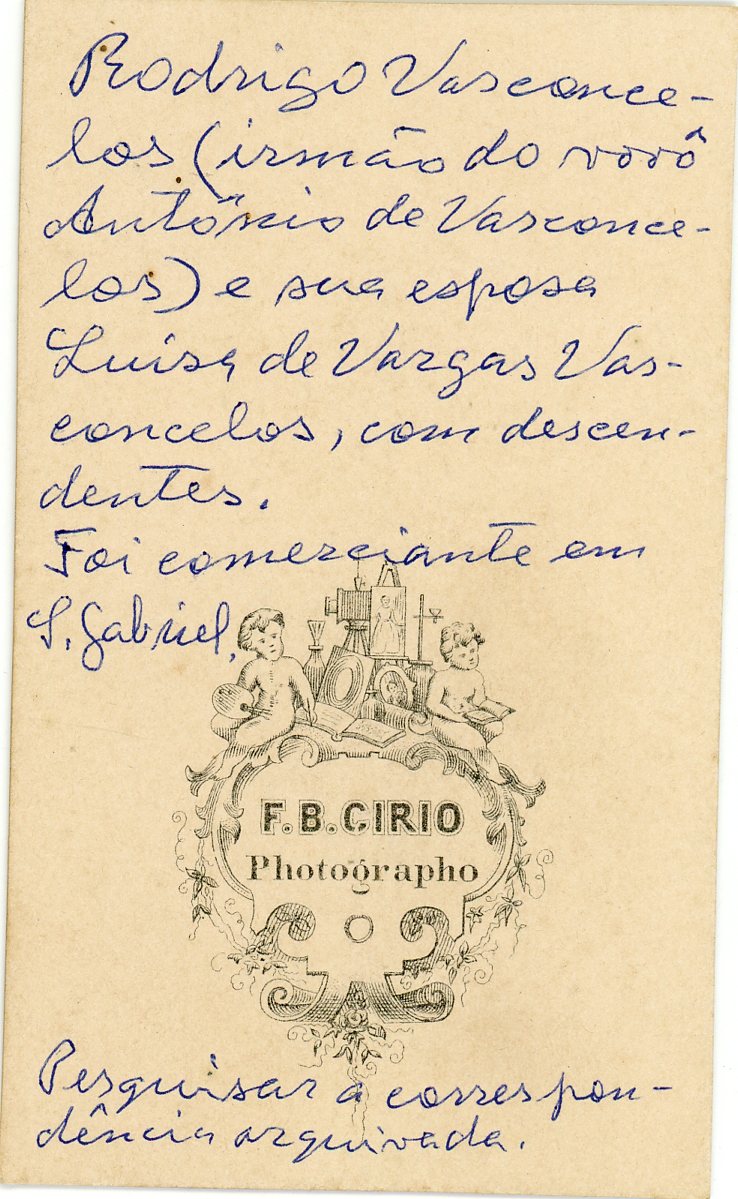 Rodrigo Vasconce-
los (irmão do vovô
Antônio de Vasconce-
los) e sua esposa
Luísa de Vargas Vas-
concelos, com descen-
dentes.
Foi comerciante em
S. Gabriel.
F. B. CIRIO
Photographo
Pesquisar a correspon-
dência arquivada.